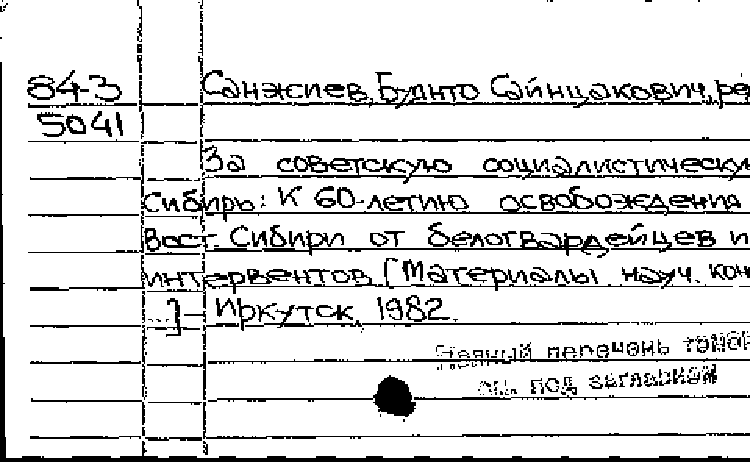 84-3 Санжиев, Буянто Сайнцакович, ре
5041
За советскую социалистическу
Сибирь: К 60-летию освобождения
Вост. Сибири от белогвардейцев и
интервентов [Материалы науч. кон
...] - Иркутск, 1982.
Полный перечень томов
см. под заглавием